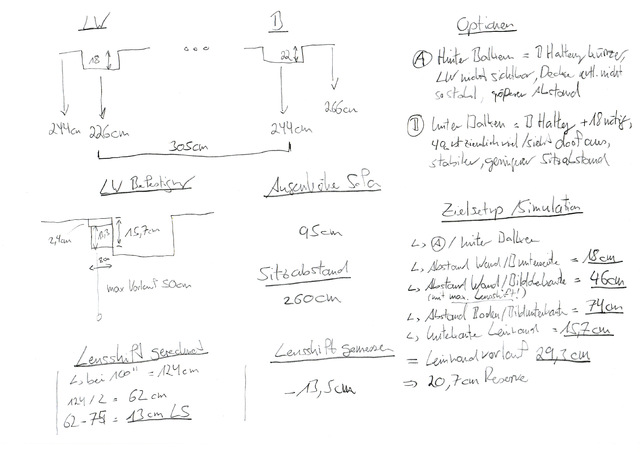 LW
B
18
22
244cm
226cm
244cm
266cm
305cm
LW Befestigung
2,4cm
13,3
15,7cm
max Vorlauf 50cm
Augenhöhe Sofa
95cm
Sitzabstand
260cm
Lensshift gerechnet
↳ bei 100" = 124cm
124/2 = 62cm
62-75 = 13cm LS
Lensshift gemessen
-13,5cm
Optionen
Ⓐ Hinter Balken = B Halter kürzer,
LW nicht sichtbar, Decke evtl. nicht
so stabil, größerer Abstand
Ⓑ Unter Balken = B Halter +18 nötig,
sieht doof aus,
stabiler, geringerer Sitzabstand
Zielsetup/Simulation
↳ Ⓐ / Hinter Balken
↳ Abstand Wand/B = 18cm
↳ Abstand Wand/Bildoberkante = 46cm
(mit max. Lensshift!)
↳ Abstand Boden/Bildunterkante = 74cm
↳ Unterkante Leinwand = 15,7cm
= Leinwandvorlauf 29,3cm
⇒ 20,7cm Reserve